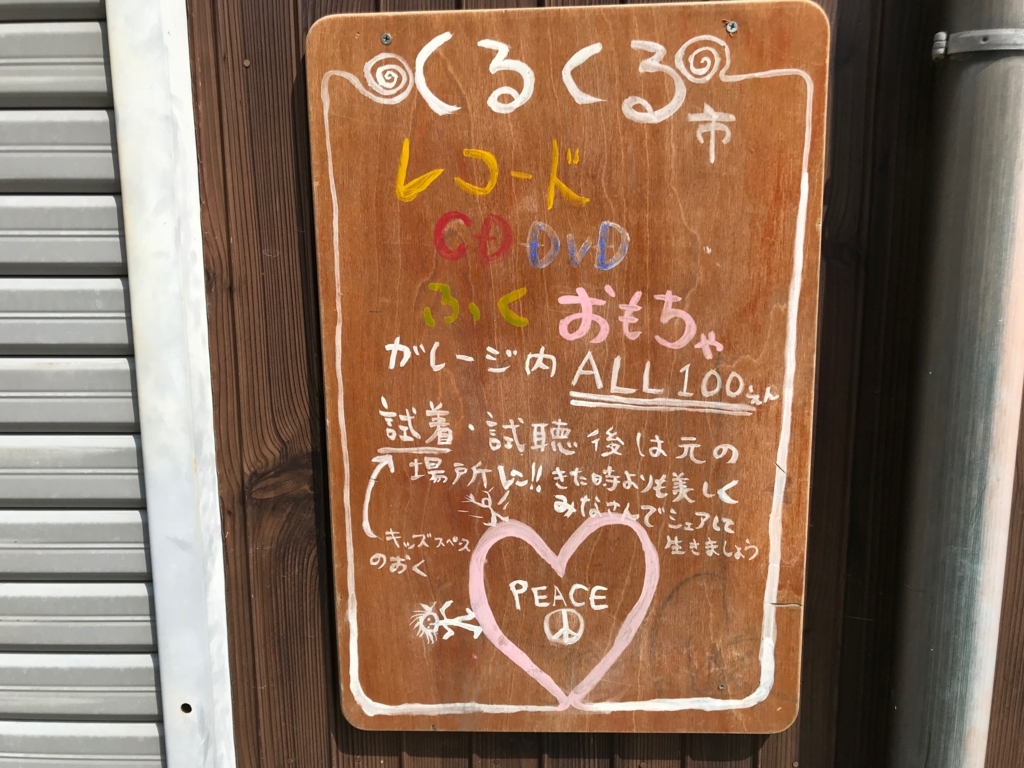 くるくる市
レコード
CD DVD
ふく おもちゃ
ガレージ内 ALL 100えん
試着・試聴後は元の
場所に!! きた時よりも美しく
みなさんでシェアして
生きましょう
キッズスペース
のおく
PEACE